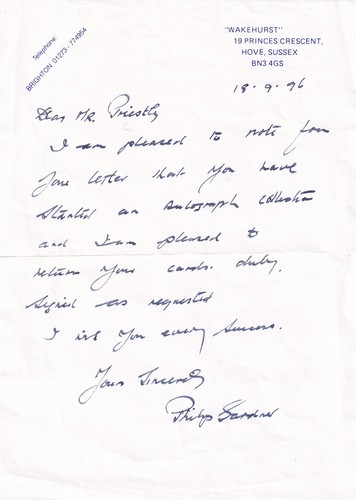 Telephone:
BRIGHTON 01273 - 774954
"WAKEHURST"
19 PRINCES CRESCENT,
HOVE, SUSSEX
BN3 4GS
18 - 9 - 96
Dear Mr. Priestly
I am pleased to note from
your letter that you have
started an autograph collection
and I am pleased to
return your cards. duly,
signed as requested
I wish you every success.
Yours Sincerely
Philip Gardner